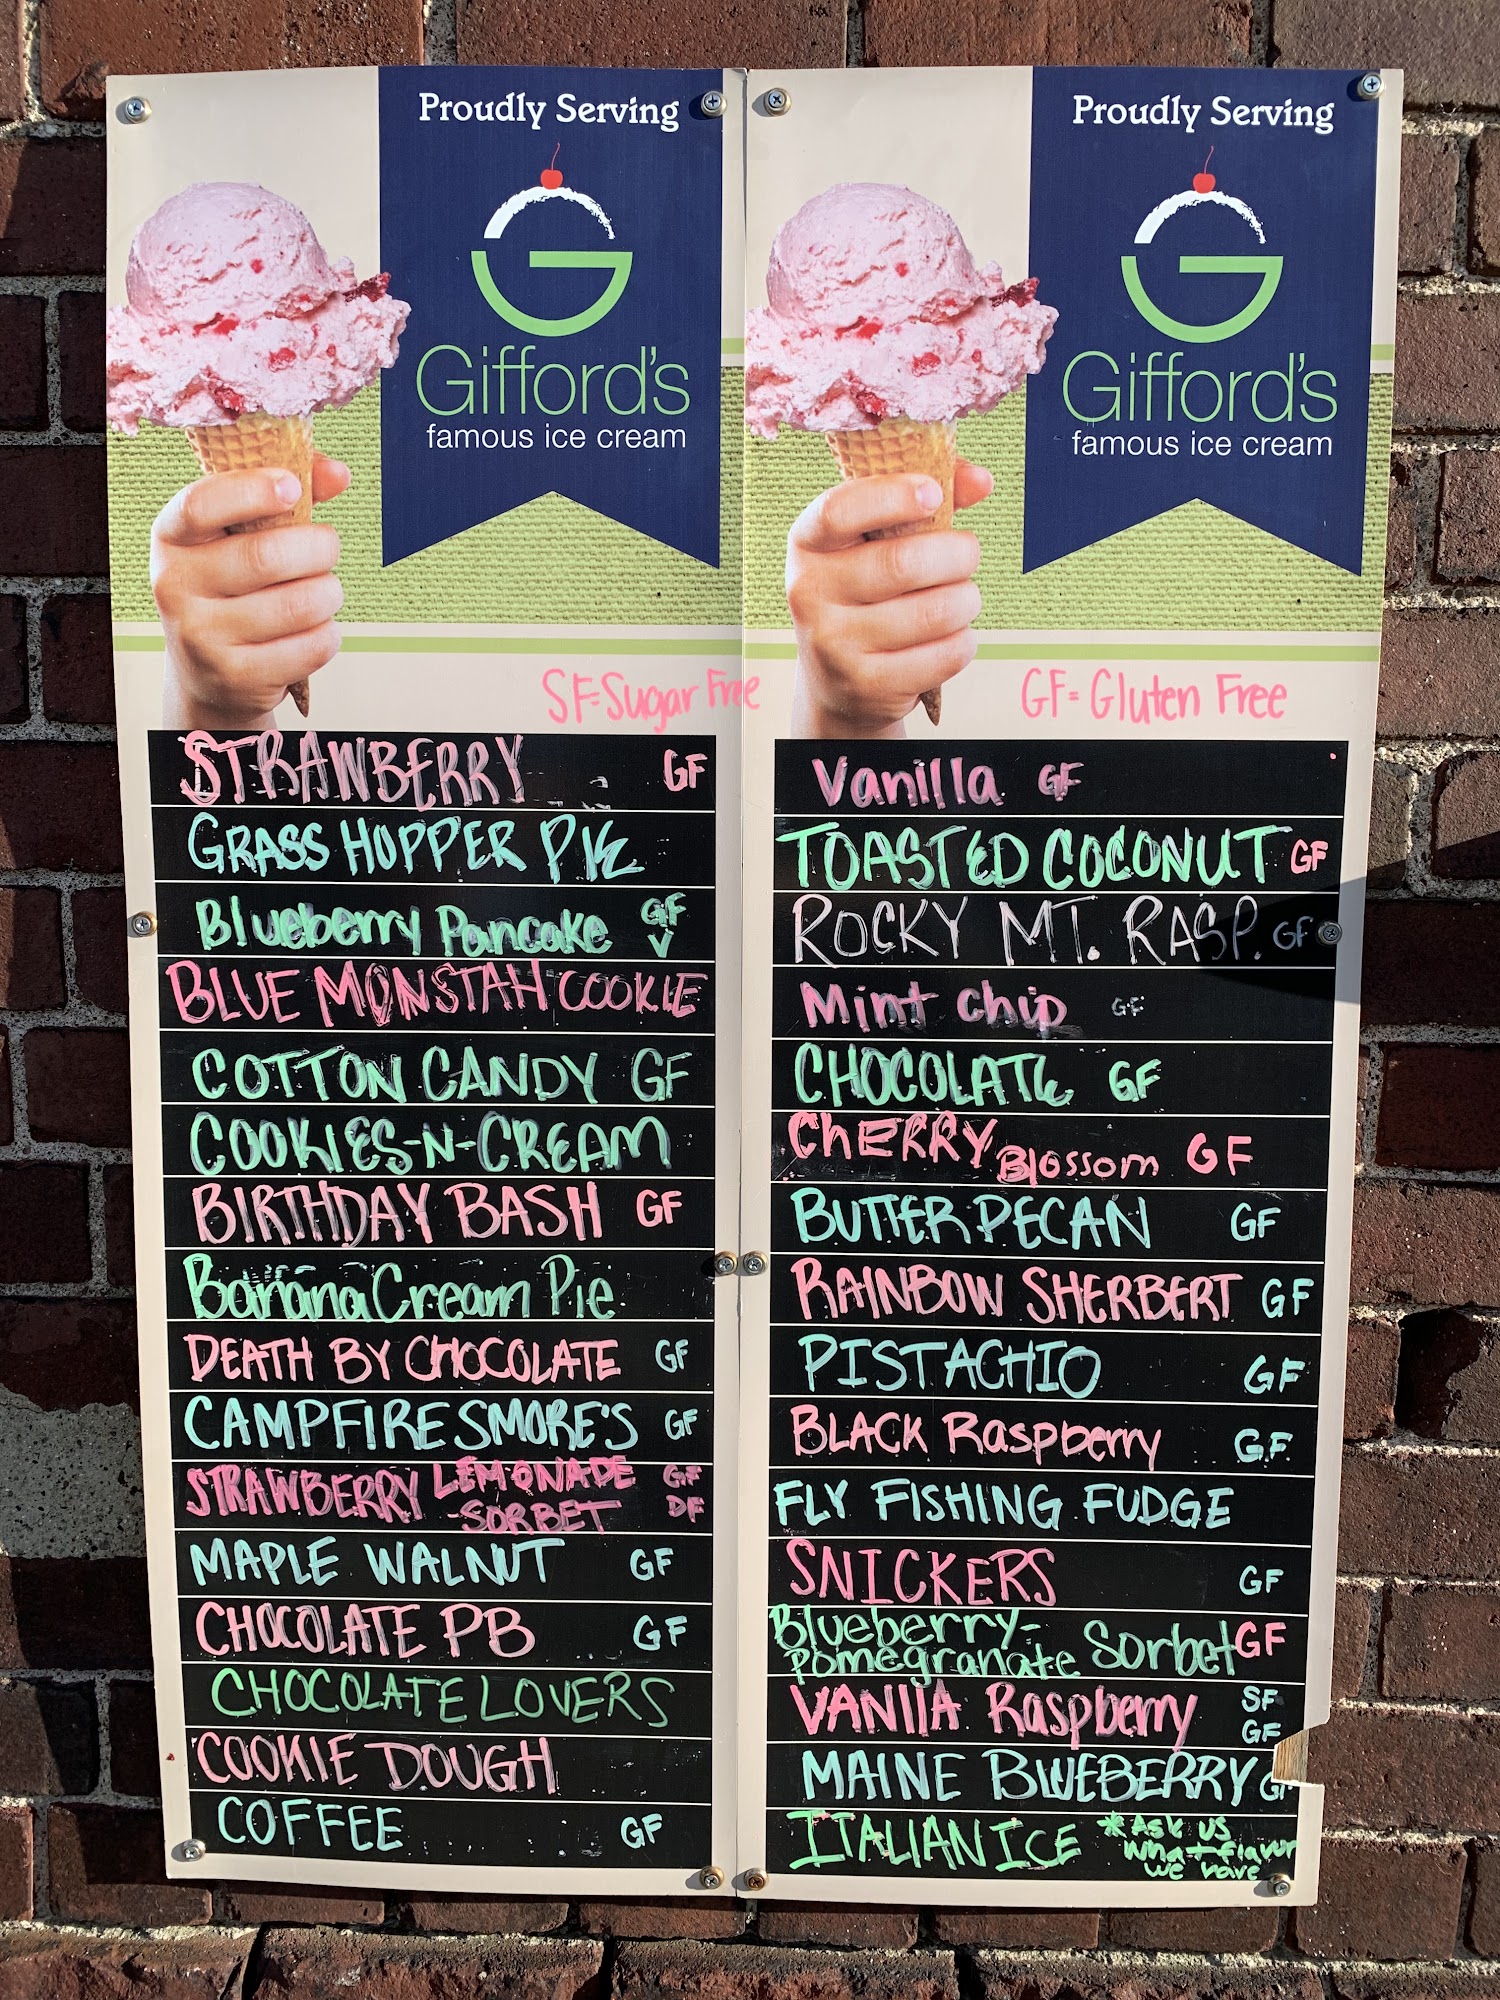 Proudly Serving
G
Gifford's
famous ice cream
SF=Sugar Free
STRAWBERRY GF
GRASS HOPPER PIE
Blueberry Pancake GF
V
BLUE MONSTAH COOKIE
COTTON CANDY GF
COOKIES-N-CREAM
BIRTHDAY BASH GF
Banana Cream Pie
DEATH BY CHOCOLATE GF
CAMPFIRE SMORE'S GF
STRAWBERRY LEMONADE GF
-SORBET DF
MAPLE WALNUT GF
CHOCOLATE PB GF
CHOCOLATE LOVERS
COOKIE DOUGH
COFFEE GF
Proudly Serving
G
Gifford's
famous ice cream
GF=Gluten Free
Vanilla GF
TOASTED COCONUT GF
ROCKY MT. RASP. GF
Mint chip GF
CHOCOLATE GF
CHERRY Blossom GF
BUTTER PECAN GF
RAINBOW SHERBERT GF
PISTACHIO GF
BLACK Raspberry GF
FLY FISHING FUDGE
SNICKERS GF
Blueberry-
Pomegranate Sorbet GF
VANIlA Raspberry SF
GF
MAINE BLUEBERRY GF
ITALIAN ICE *Ask us
what flavor
we have